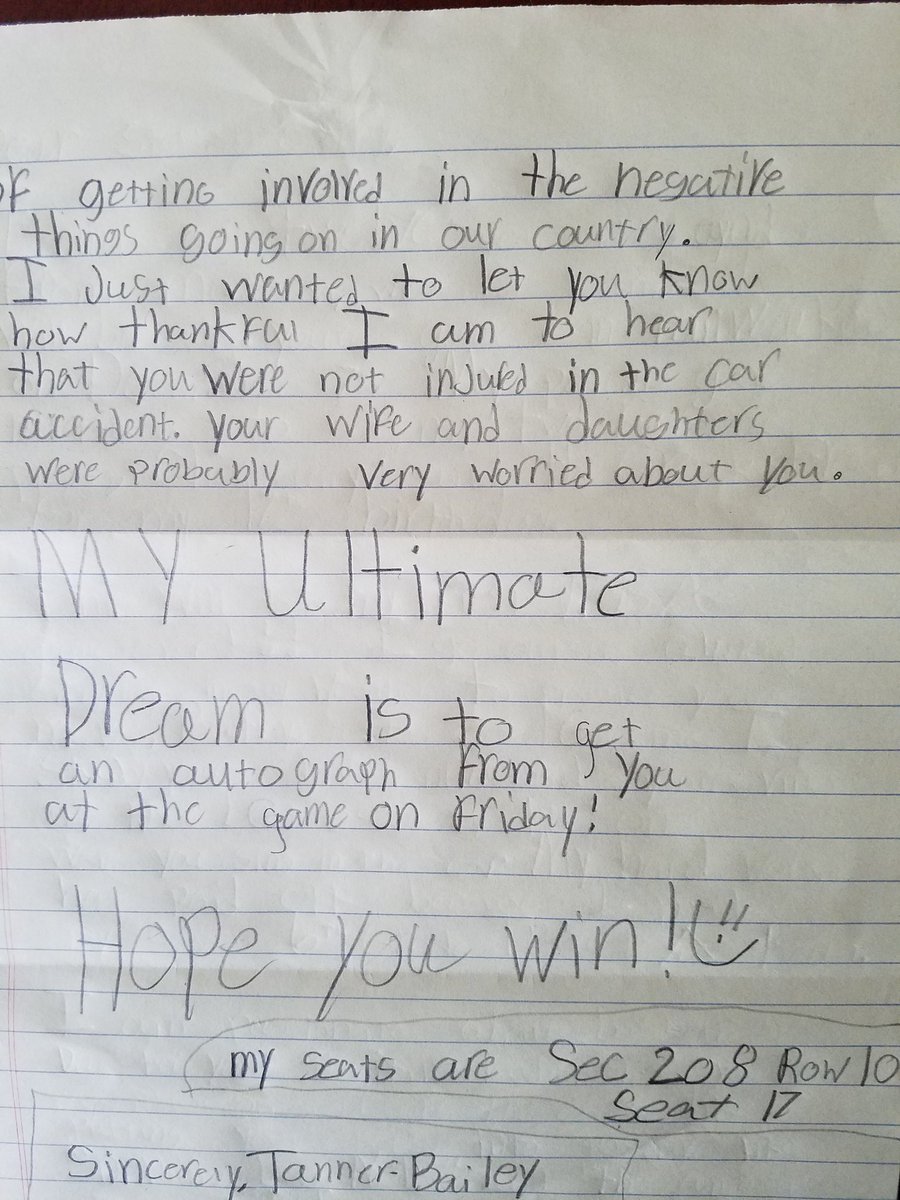 of getting involved in the negative
things going on in our country.
I Just wanted to let you know
how thankful I am to hear
that you were not injured in the car
accident. your wife and daughters
were probably very worried about you.
MY Ultimate
Dream is to get
an autograph from you
at the game on Friday!
Hope you win!
my seats are Sec 208 Row 10
Seat 17
Sincerely, Tanner Bailey